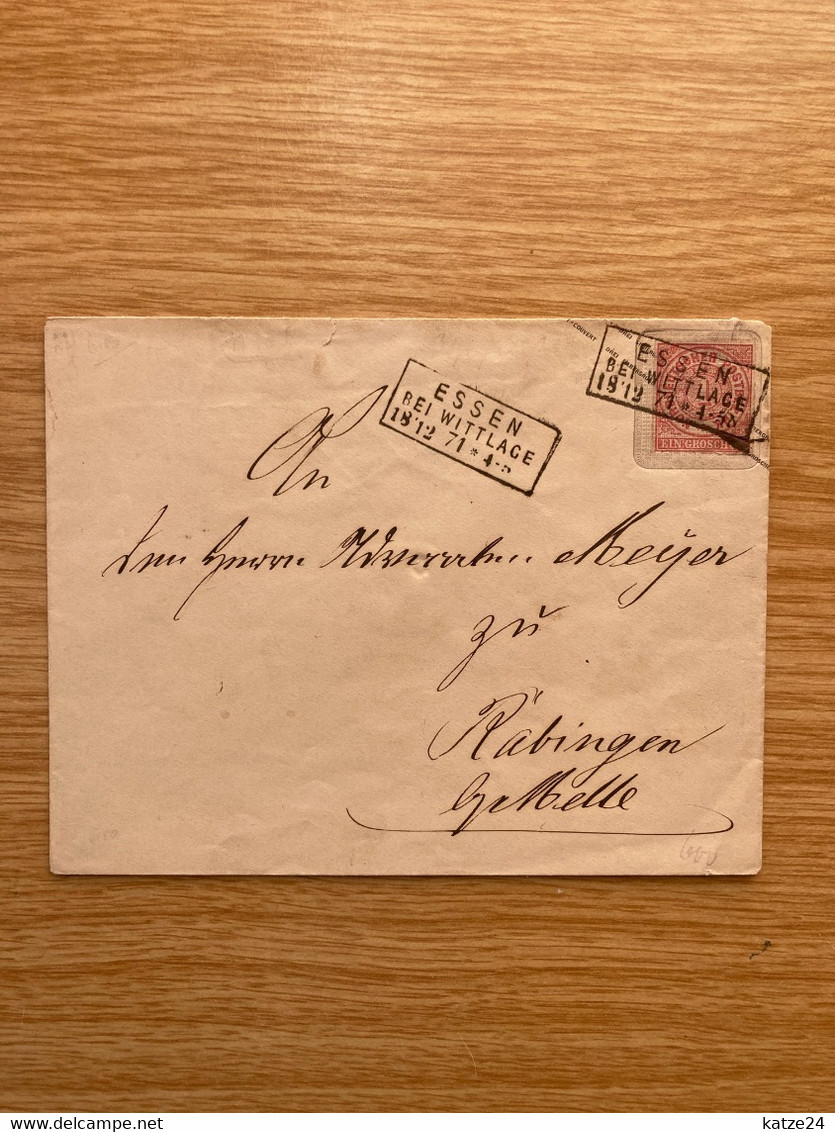 ESSEN
BEI WITTLAGE
18 12 71 * 4-5
ESSEN
BEI WITTLAGE
18 12 71 * 4-5
EIN GROSCHEN
An
den Herrn Meyer
zu
Räbingen
b/ Melle
katze24